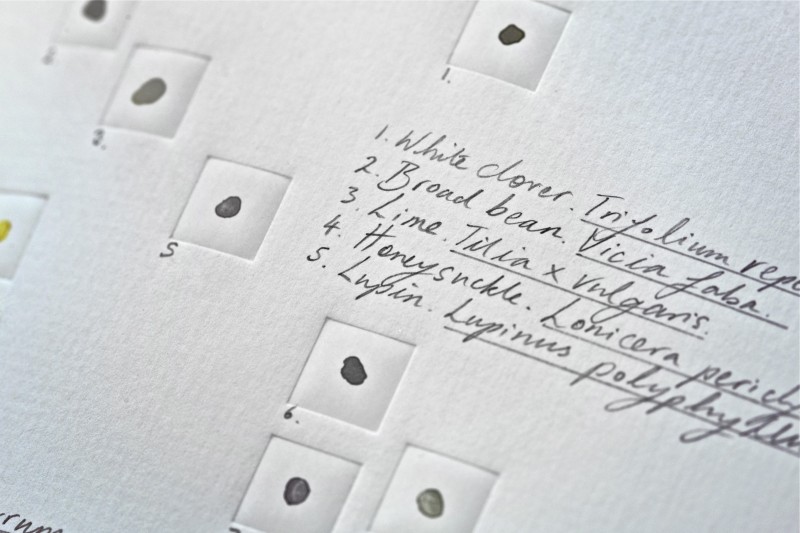 1.
2.
5
1. White clover. Trifolium repe
2. Broad bean. Vicia faba.
3. Lime. Tilia x vulgaris.
4. Honeysuckle. Lonicera pericly
5. Lupin. Lupinus polyphyllu
6.